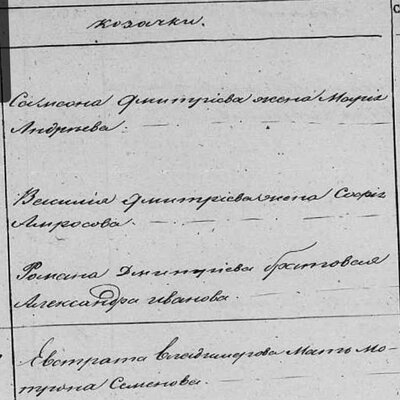 козачки.
Самсона Дмитріева жена Марія
Андреева.
Василія Дмитріева жена Софія
Амросова.
Романа Дмитріева братовая
Александра Иванова.
Евстрата Владимерова Мать Мо-
трона Семенова.